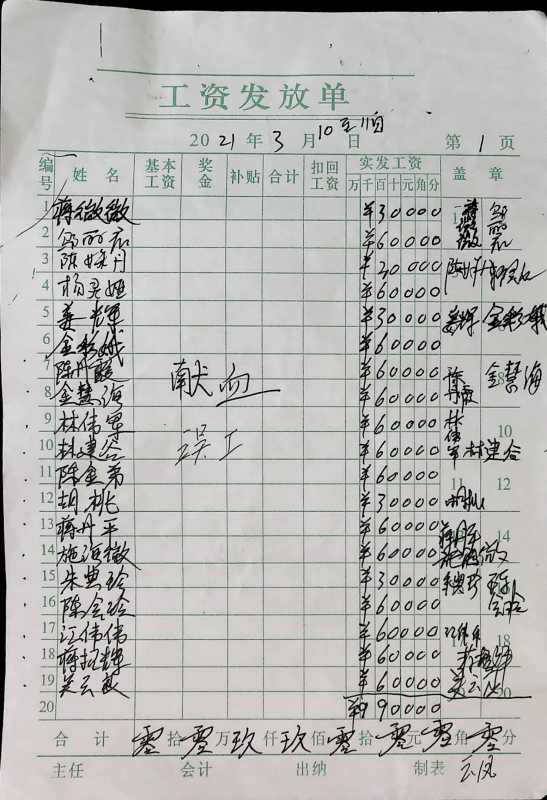 工资发放单
2021年3月10至11日 第1页
编号 姓名 基本工资 奖金 补贴 合计 扣回工资 实发工资 盖章
万千百十元角分
1 蒋微微 ¥30000 蒋微微
2 邹丽君 ¥60000 邹丽君
3 陈妹丹 ¥20000
4 ¥60000
5 姜辉 ¥30000 姜辉
6 金彩娥 ¥60000 金彩娥
7 陈丹霞 ¥60000 陈丹霞
8 金慧海 献血 ¥60000 金慧海
9 林伟军 ¥60000 林伟军
10 林建合 误工 ¥60000 林建合
11 陈金弟 ¥60000
12 胡桃 ¥30000 胡桃
13 蒋丹平 ¥60000 蒋丹平
14 施海微 ¥60000 施海微
15 朱典玲 ¥30000
16 陈合玲 ¥60000
17 江伟伟 ¥60000 江伟伟
18 ¥60000
19 ¥60000
20 ¥990000
合计 零拾零万玖仟玖佰零拾零元零角零分
主任 会计 出纳 制表 云凤